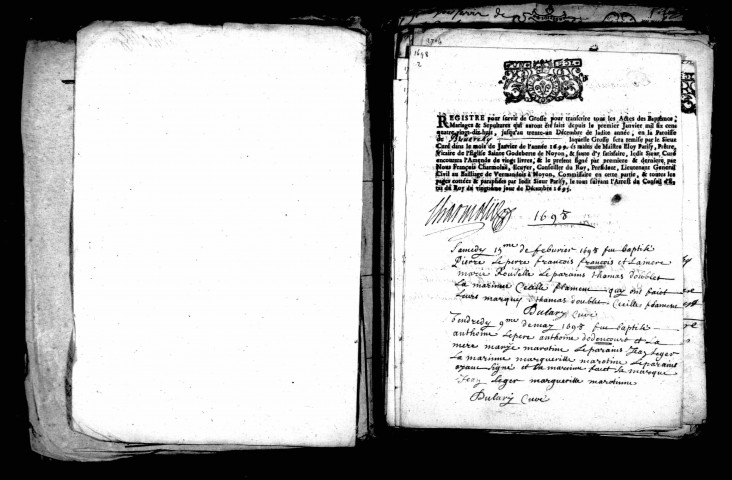 1698
2
REGISTRE pour servir de Grosse pour transcrire tous les Actes des Baptesmes,
Mariages & Sepultures qui auront été fait depuis le premier Janvier mil six cens
quatre-vingt-dix-huit, jusqu'au trente-un Décembre de ladite année, en la Paroisse
de laquelle Grosse sera remise par le Sieur
Curé dans le mois de Janvier de l'année 1699. és mains de Maistre Eloy Parisy, Prêtre,
Vicaire de l'Eglise Sainte Godeberte de Noyon, & faute d'y satisfaire, ledit Sieur Curé
encourera l'Amende de vingt livres, & le present signé par premiere & derniere, par
Nous François Charmolüe, Ecuyer, Conseiller du Roy, President, Lieutenant General
Civil au Bailliage de Vermandois à Noyon, Commissaire en cette partie, & toutes les
pages cottées & paraphées par ledit Sieur Parisy, le tout suivant l'Arrest du Conseil d'Es-
tat du Roy du vingtiéme jour de Décembre 1695.
Charmolüe 1698
Samedy 15me de feburier 1698 fut baptisé
pierre le pere francois francois et la mere
marie le parains thomas doublet
la marinne Cecille flameur quy ont faict
leurs marques thomas doublet Cecille flameur
Dulary Curé
Vendredy 9me de may 1698 fut baptisé
anthoine le pere anthoine dodencourt et la
mere marye marotine le parains Jean leger
la marinne marguerille marotine le parains
ayant signé et la marinne faict sa marque
Jean leger marguerille marotinne
Dulary Curé